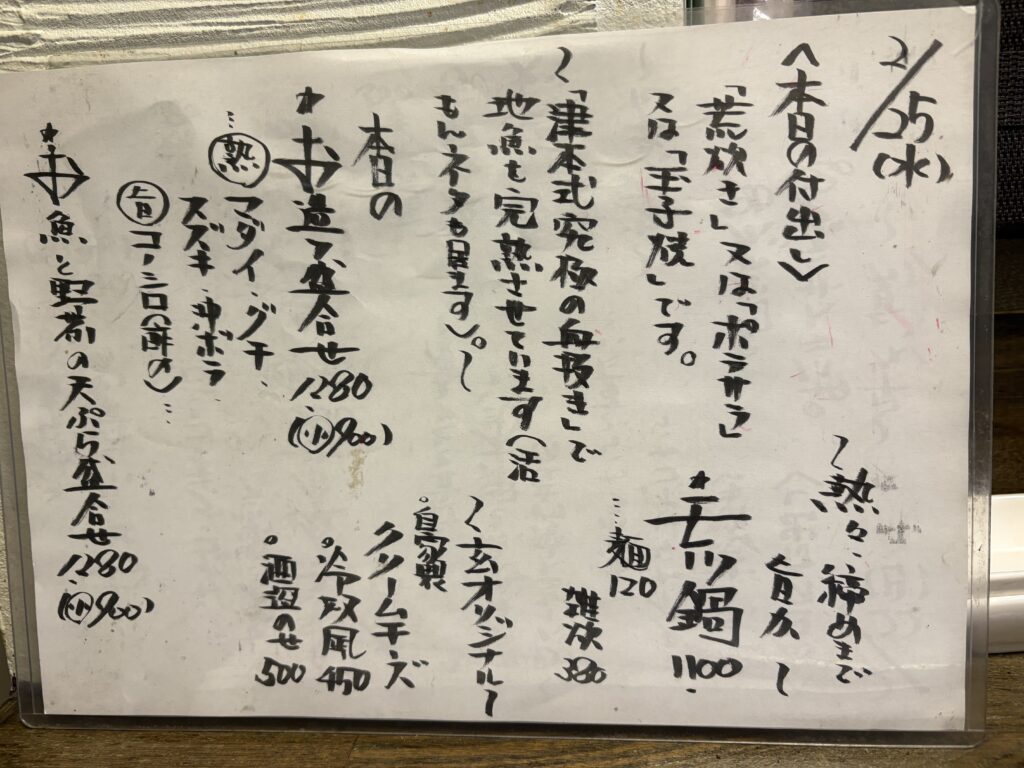 2/25(水)
〈本日の付出し〉
「荒炊き」又は「ボラサラ」
又は「玉子焼」です。
〜「津本式究極の血抜き」で
地魚を完熟させています(活
もんネタも居ます)。〜
本日の
*お造り盆合せ1280
(小900)
…熟 マダイ・グチ、
スズキ・沖ボラ
旨 コノシロ(酢〆)…
*お魚と野菜の天ぷら盆合せ1280
(小900)
〜熱々、締めまで
旨カ〜
*モツ鍋1100
…麺120
雑炊380
〜玄オリジナル〜
。自家製
クリームチーズ
。冷奴風450
。酒盗のせ500